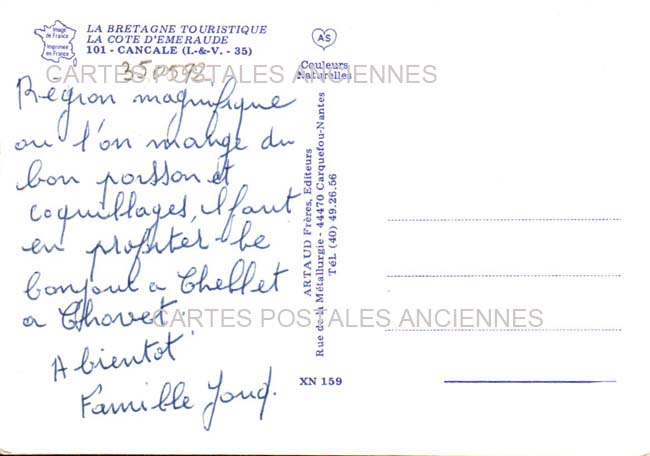 Image
de France
Imprimée
en France
LA BRETAGNE TOURISTIQUE
LA COTE D'EMERAUDE
101 - CANCALE (I.-&-V. - 35)
AS
Couleurs
Naturelles
CARTES POSTALES ANCIENNES
Région magnifique
ou l'on mange du
bon poisson et
coquillages, il faut
en profiter - le
bonjour a Chellet
a Chovet.
A bientôt
Famille
CARTES POSTALES ANCIENNES
ARTAUD Frères, Editeurs
Rue de la Métallurgie - 44470 Carquefou-Nantes
Tél. (40) 49.26.56
XN 159